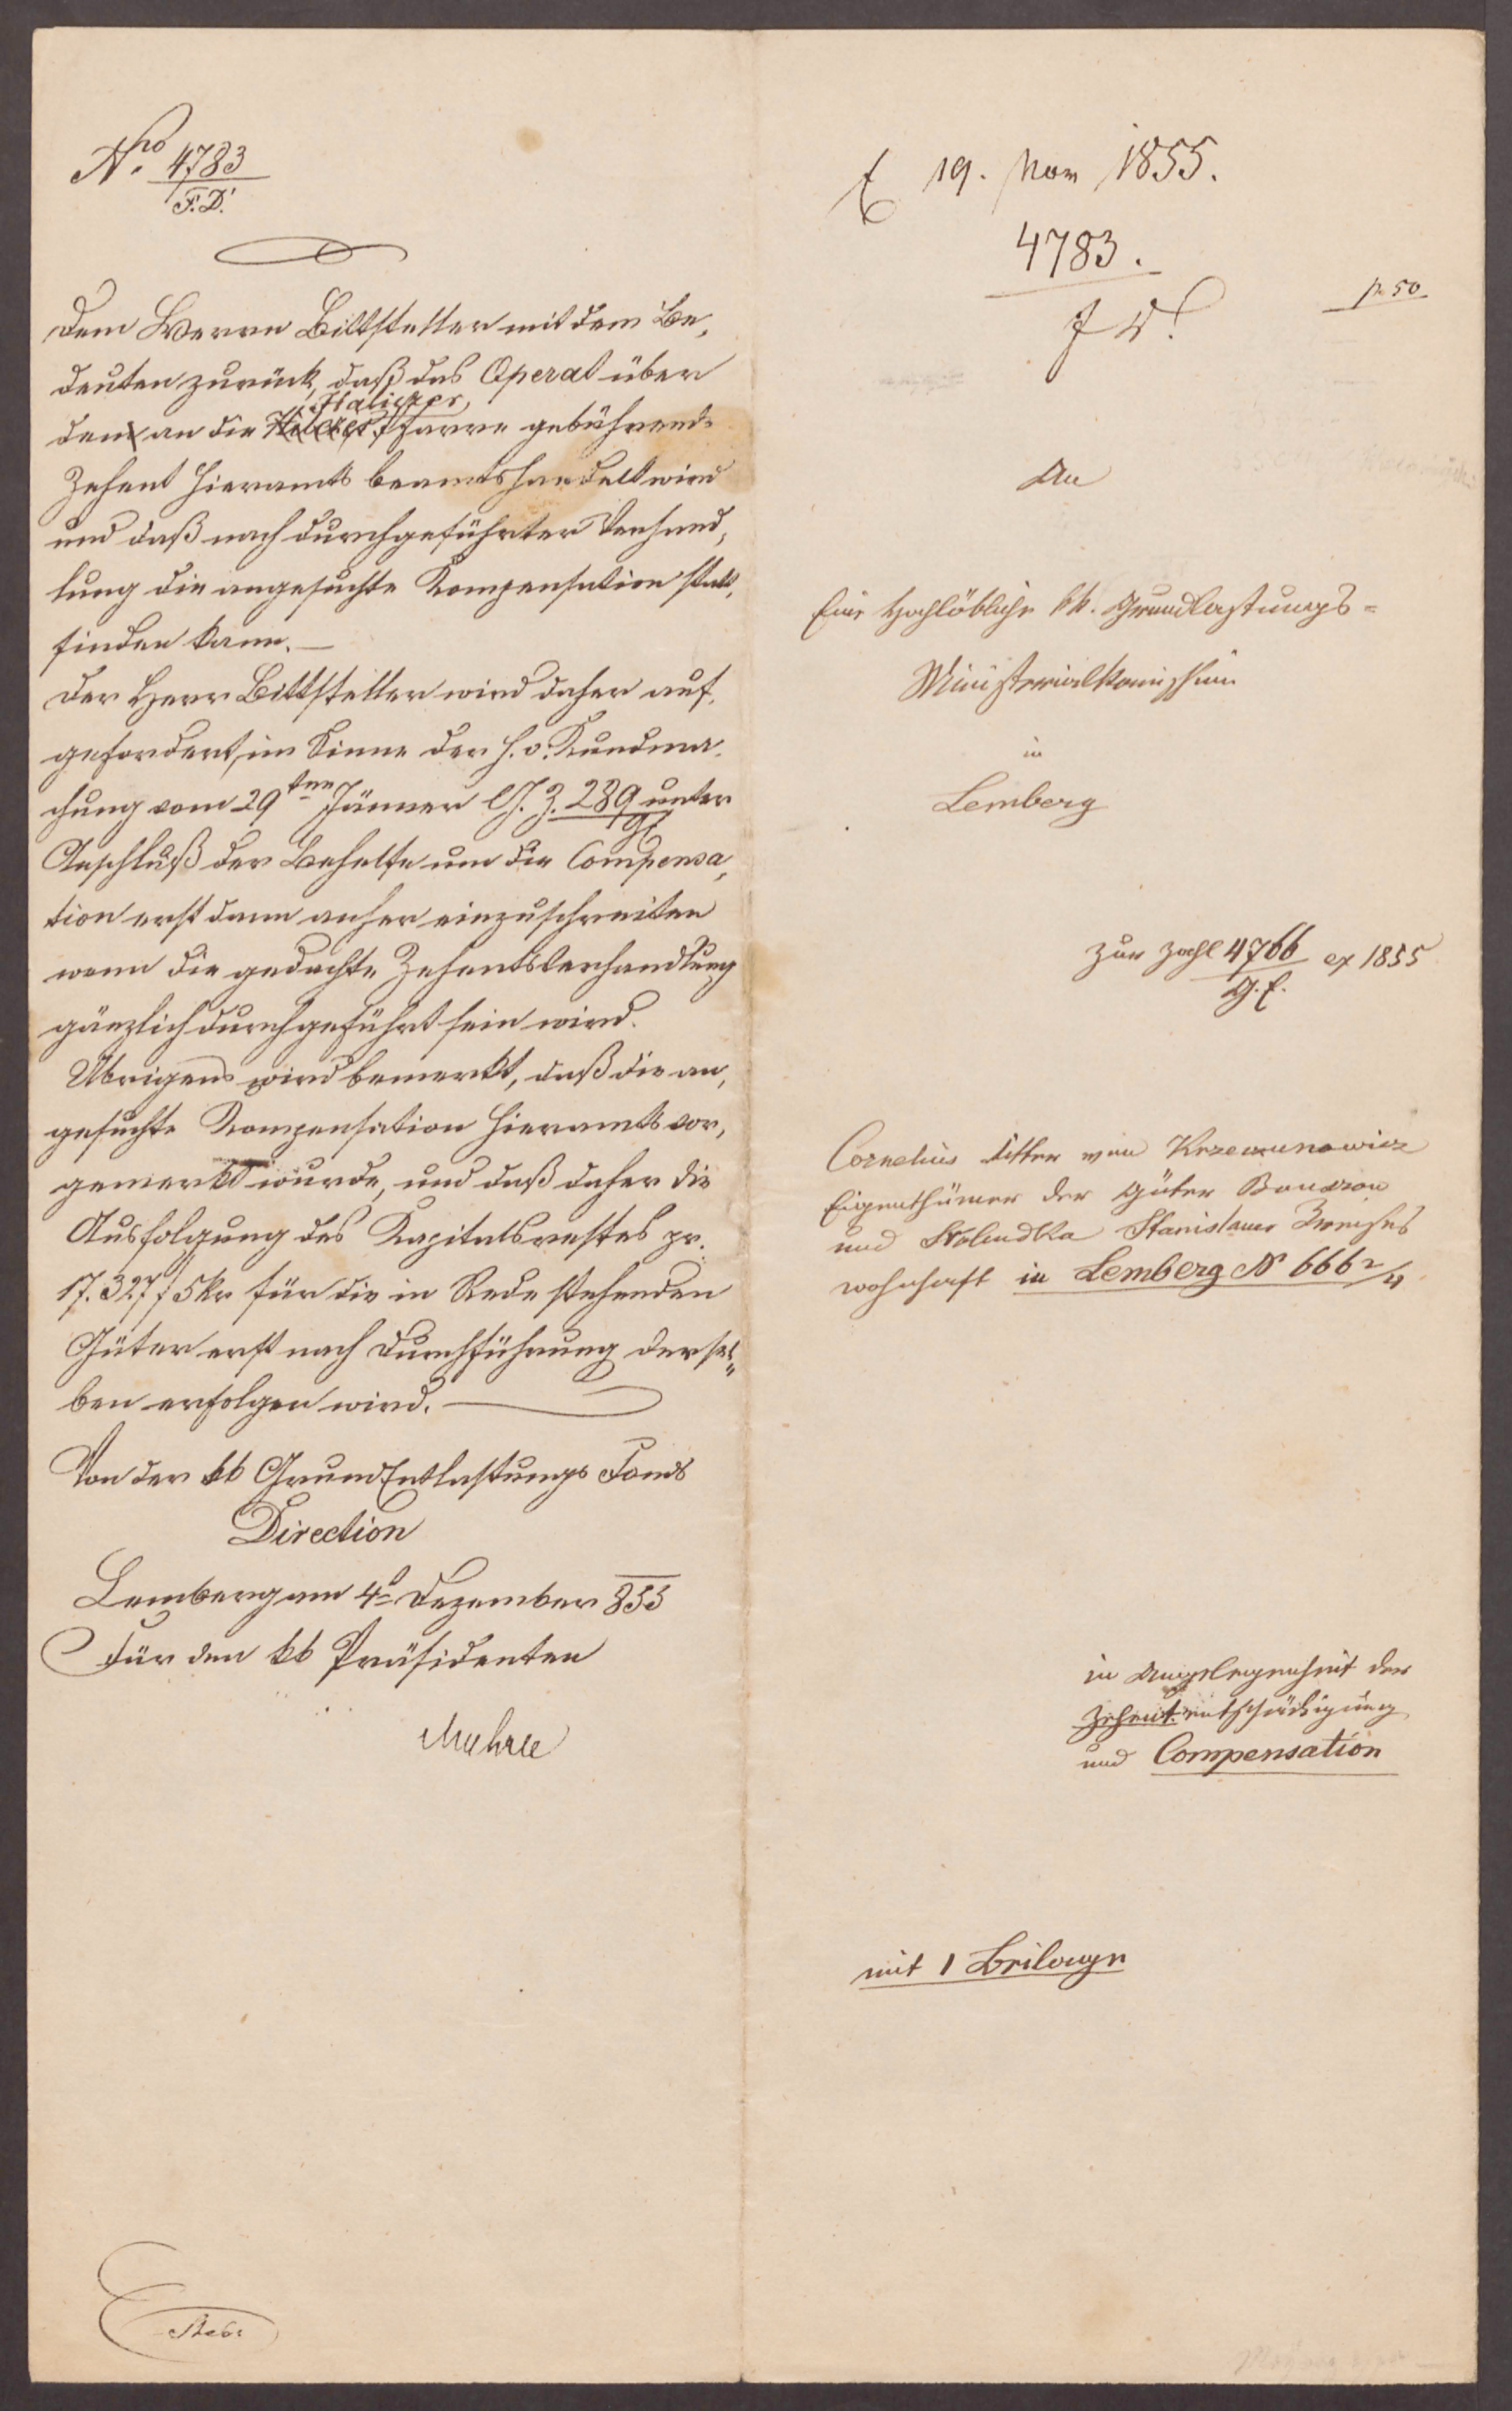 Nro 4783
F. D.
Dem Herrn Bittsteller mit dem Be,
deuten zurück, daß das Operat über
Haliczer
den an die Pfarre gebührend.
Zehent hieramts beamtshandelt wird
und daß nach durchgeführter Verhand,
lung die angesuchte Kompensation statt,
finden kann. —
Der Herr Bittsteller wird daher auf,
gefordert, im Sinne der h. o. Kundma,
chung vom 29ten Jänner l. J. Z. 289 unter
Anschluß der Behelfe um die Compensa,
tion erst dann anher einzuschreiten
wenn die gedachte Zehentsverhandlung
gänzlich durchgeführt sein wird.
Übrigens wird bemerkt, daß die an,
gesuchte Kompensation hieramts vor,
gemerkt wurde, und daß daher die
Ausfolgung des Kapitalsrestes pr.
17.327 f 5 kr für die in Rede stehenden
Güter erst nach Durchführung dersel„
ben erfolgen wird. —
Von der kk GrundEntlastungs Fonds
Direction
Lemberg am 4t Dezember 855
Für den kk Präsidenten
19. Nov 1855.
4783.
F D.
pr 50
An
Eine Hochlöbliche kk. Grundlastungs-
Ministerialkomission
in
Lemberg
zur Zahl 4766 ex 1855
G. E.
Cornelius Ritter von Krzeczunowicz
Eigenthümer der Güter Bouszow
und Stolendka Stanislauer Kreises
wohnhaft in Lemberg N 666 2/4
in Angelegenheit der
Zehententschädigung
und Compensation
mit 1 Beilage